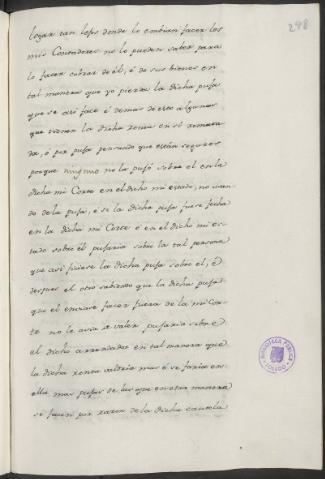 248
logar tan lejos donde lo embian facer los
mis Contadores no lo pueden saber para
lo facer cobrar de él, é de sus bienes en
tal manera que yo pierda la dicha puja
que se asi face é demas de esto algunos
que tienen la dicha renta en sí remata
da, ó por puja pensando que están seguros
porque ninguno no la pujó sobre él en la
dicha mi Corte en el dicho mi estado, no usan
do de la puja, é si la dicha puja fuera fecha
en la dicha mi Corte é en el dicho mi es
tado sobre él pujaria sobre la tal persona
que asi ficiese la dicha puja sobre él, é
despues el otro sabiendo que la dicha puja
que el enviase facer fuera de la mi Cor
te no le avia á valer pujaria sobre
el dicho arrendador en tal manera que
la dicha renta valdria mas é se faria en
ella mas pujas de las que en esta manera
se facen por razon de la dicha cautela
BIBLIOTECA PUBLICA
TOLEDO